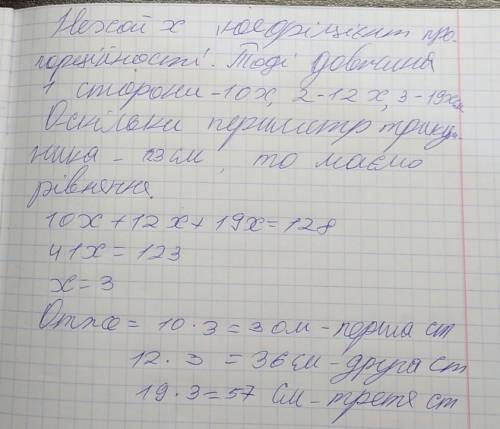 Нехай х коефіцієнт про-
порційності. Тоді довжина
1 сторони - 10х, 2 - 12х, 3 - 19х
Оскільки периметр трику
ника - 123 см, то маємо
рівняння.
10х + 12х + 19х = 128
41х = 123
х = 3
Отже = 10 · 3 = 30м - перша ст
12 · 3 = 36 см - друга ст
19 · 3 = 57 см - третя ст